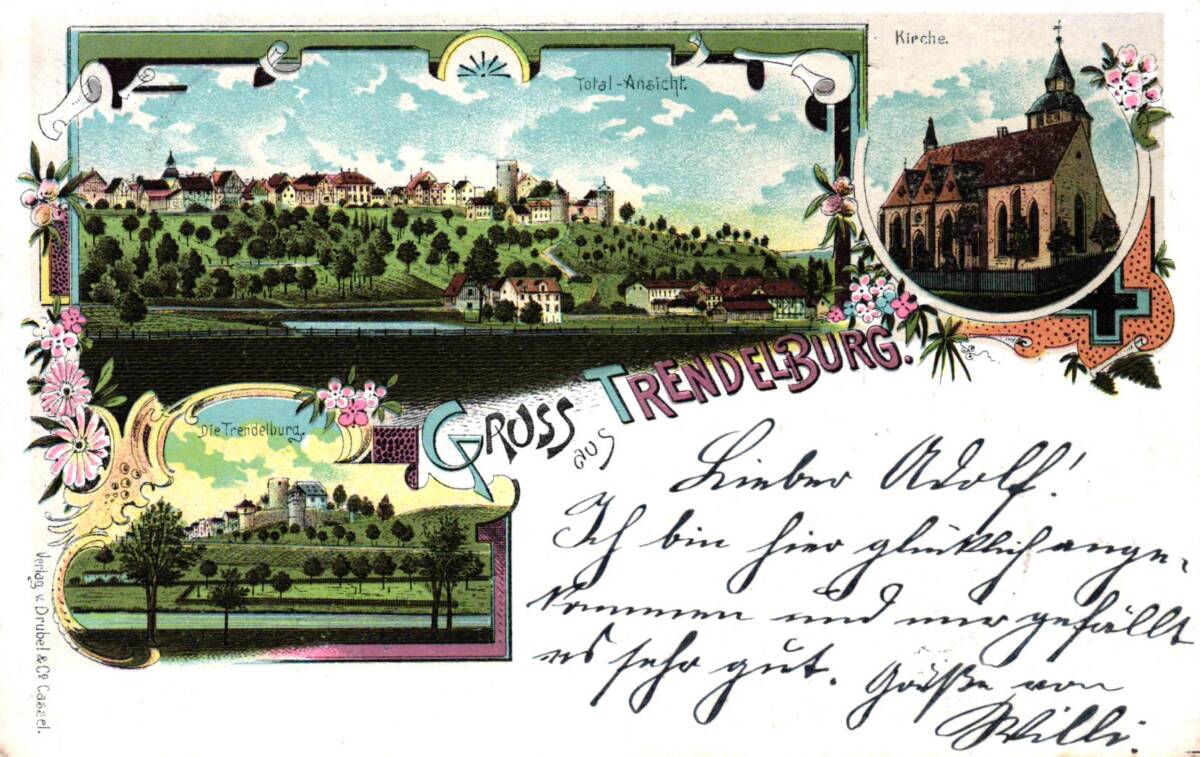 Total-Ansicht.
Kirche.
Die Trendelburg.
Gruss
aus
Trendelburg.
Lieber Adolf!
Ich bin hier glücklich ange-
kommen und mir gefällt
es sehr gut. Grüße von
Willi.
Verlag v. Drubel & Co Cassel.